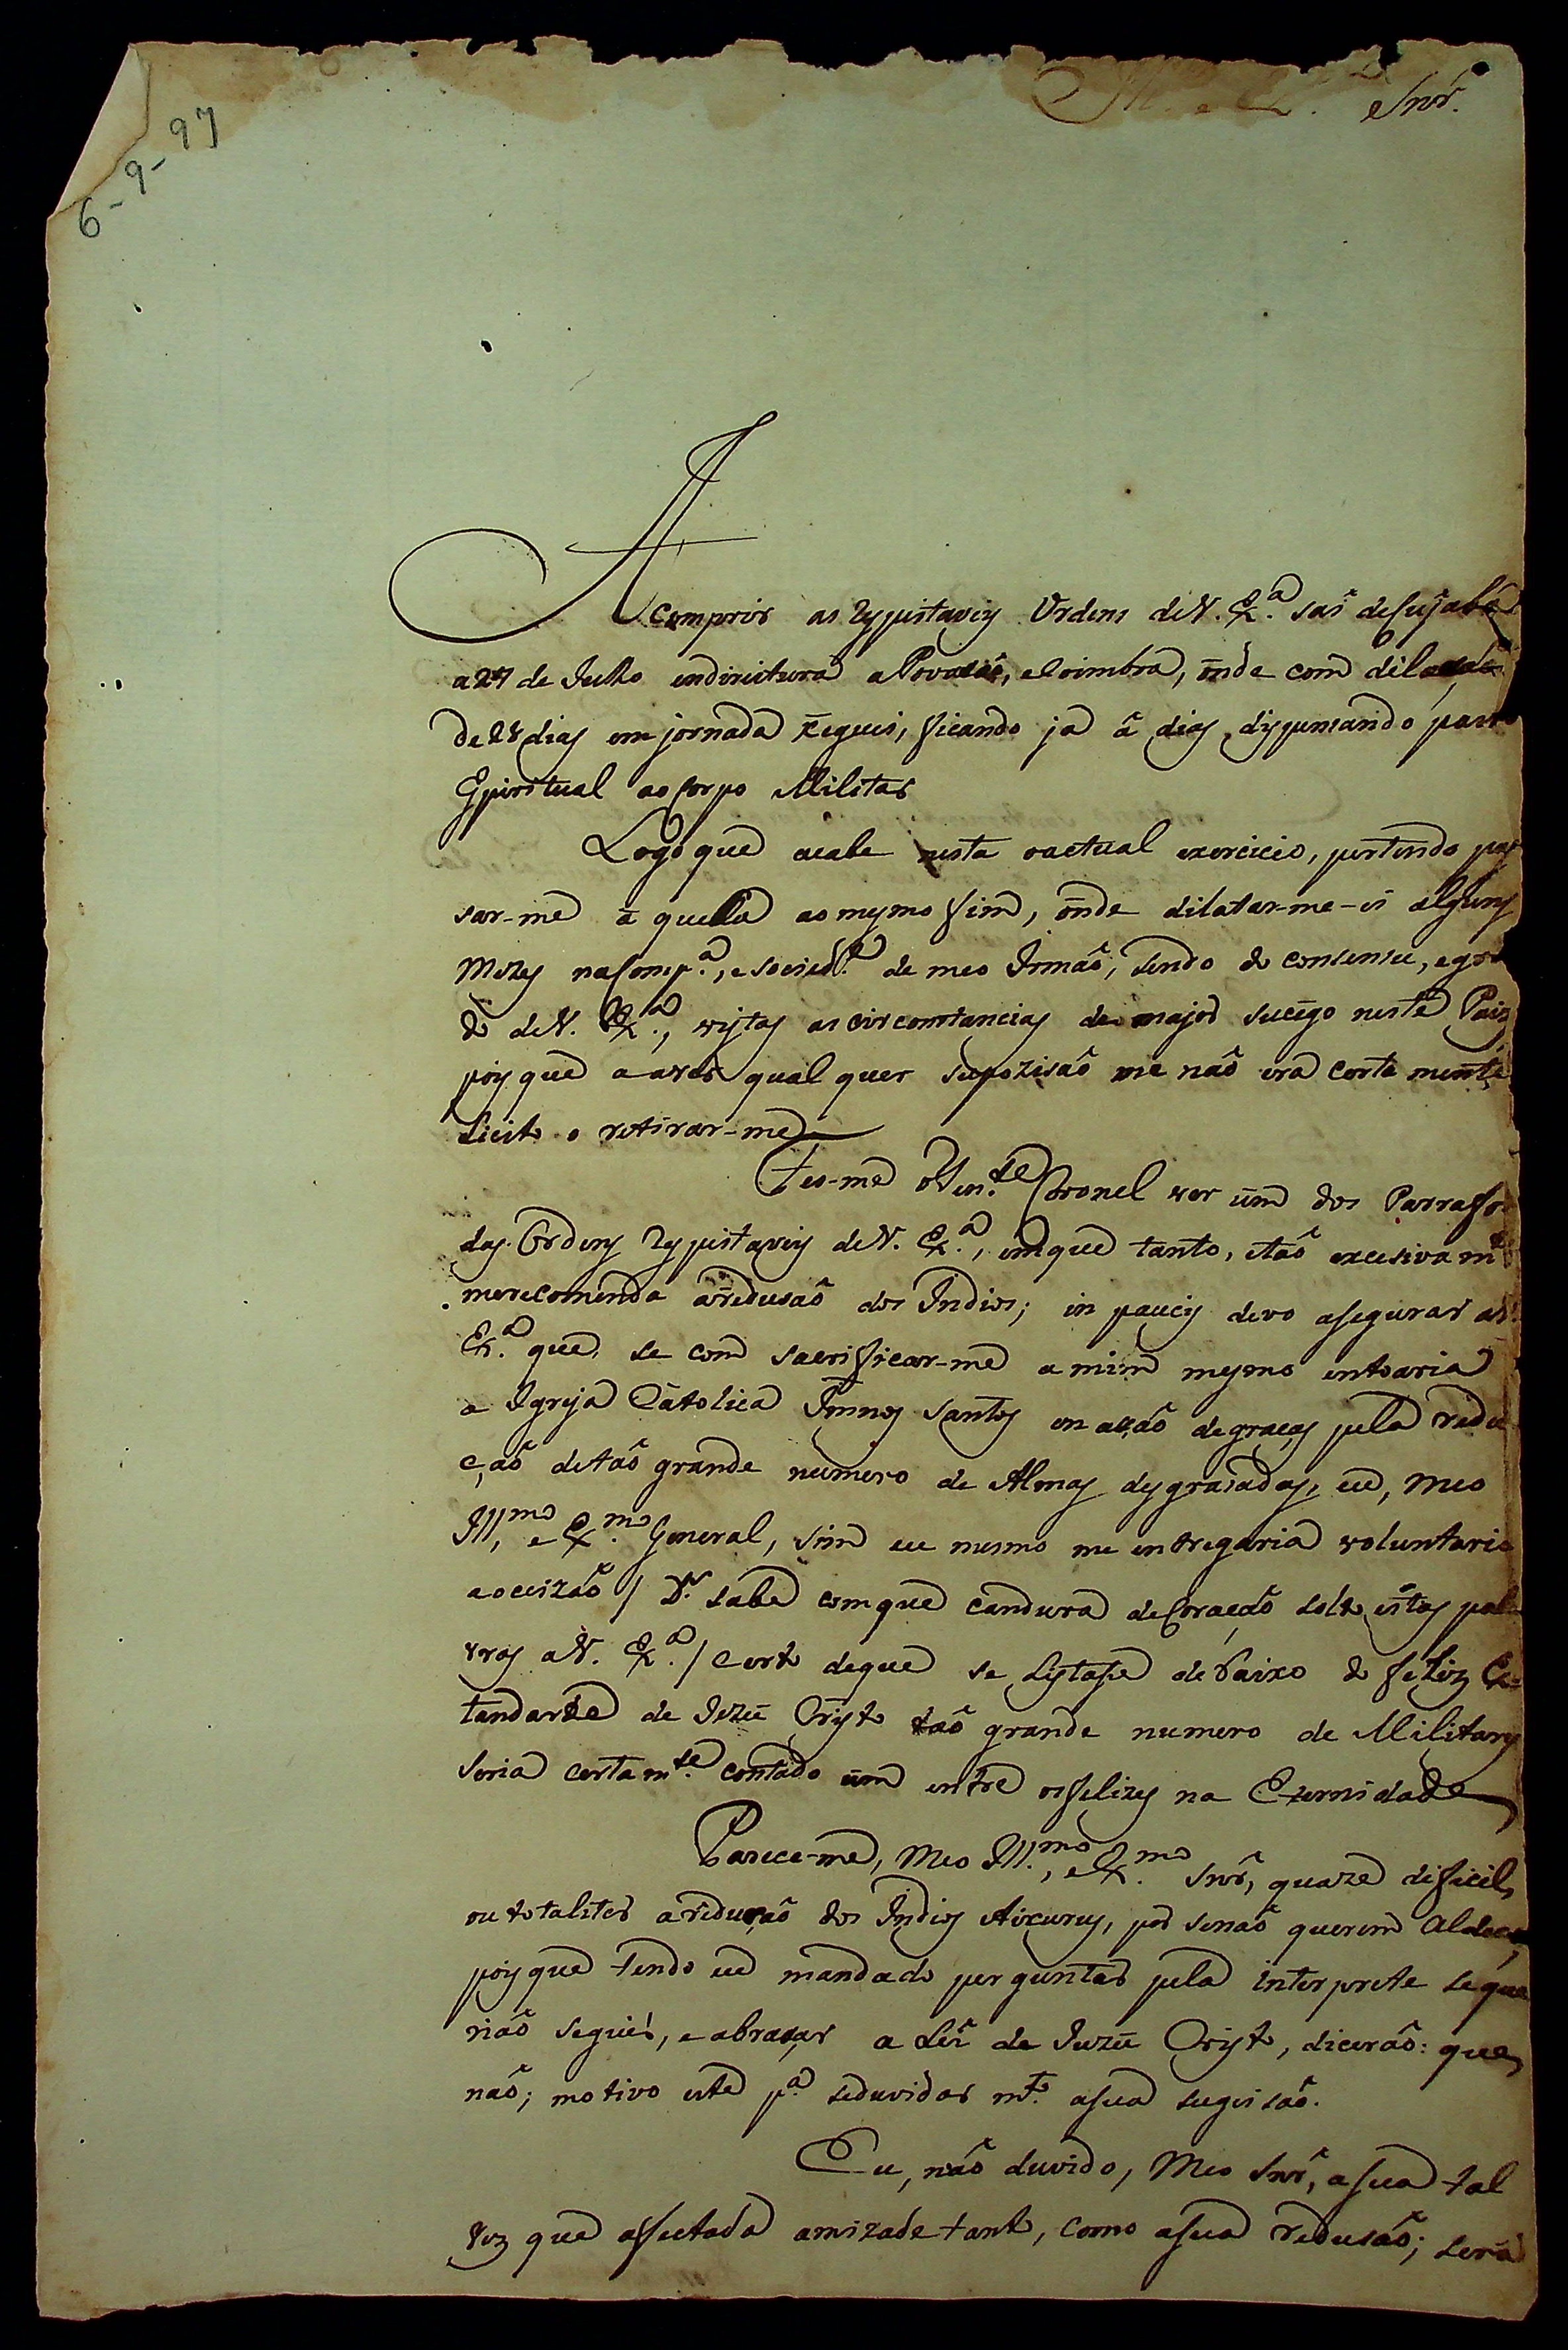 Ill.mo e Ex.mo Snr̃.
6-9-97
A comprir as respeitaveis Ordens de V. Ex.ª sai de Cujabá
a 27 de Julho endireitura a Povasaõ, e Coimbra, onde com dilasaõ
de 28 dias em jornada xeguei, ficando ja â dias dispensando pasto
Espiritual ao Corpo Militar
Logo que acabe nesta o actual exercicio, pertendo pas
sar-me a quella ao mesmo fim, onde dilatar-me-ei alguns
Mezes na Comp.ª, e socied.e de meo Irmaõ, sendo do consenso, e gos
to de V. Ex.ª, vistas as circonstancias de major sucego neste Paiz
pois que a aver qual quer supozisaõ me naõ era certa mente
Licito o retirar-me
Fes-me o Ten.te Coronel ver um dos Parrafos
das Ordens respeitaveis de V. Ex.ª, em que tanto, e taõ excesivam.te
me recomenda a redusaõ dos Indios; in paucis devo asegurar a V.
Ex.ª que, se com sacrificar-me a mim mesmo entoaria
a Igreja Catolica Imnos Santos en acaõ de graças pela redu
çaõ de taõ grande numero de Almas desgrasadas, eu, Meo
Ill.mo, e Ex.mo General, sim eu mesmo me entregaria voluntario
ao cuizaõ / D.s sabe com que candura de Coraçaõ solto estas pala
vras a V. Ex.ª / certo de que se listase de baixo do feliz Es=
tandarte de Jezu Cristo taõ grande numero de Militares
seria certam.te contado um entre os felizes na Eternidade
Parece-me, Meo Ill.mo, e Ex.mo Snr̃, quaze dificil,
ou totaliter a reduçaõ dos Indios Aixurus, por se naõ querem Aldear
pois que tendo eu mandado perguntar pela interprete se que
riaõ seguir, e abrasar a Lei de Jezu Cristo, diceraõ: que
naõ; motivo este p.ª se duvidar m.to a sua sugeisaõ.
Eu, naõ duvido, Meo Snr̃, a sua tal
vez que afectada amizade tanto, como a sua redusaõ; sera